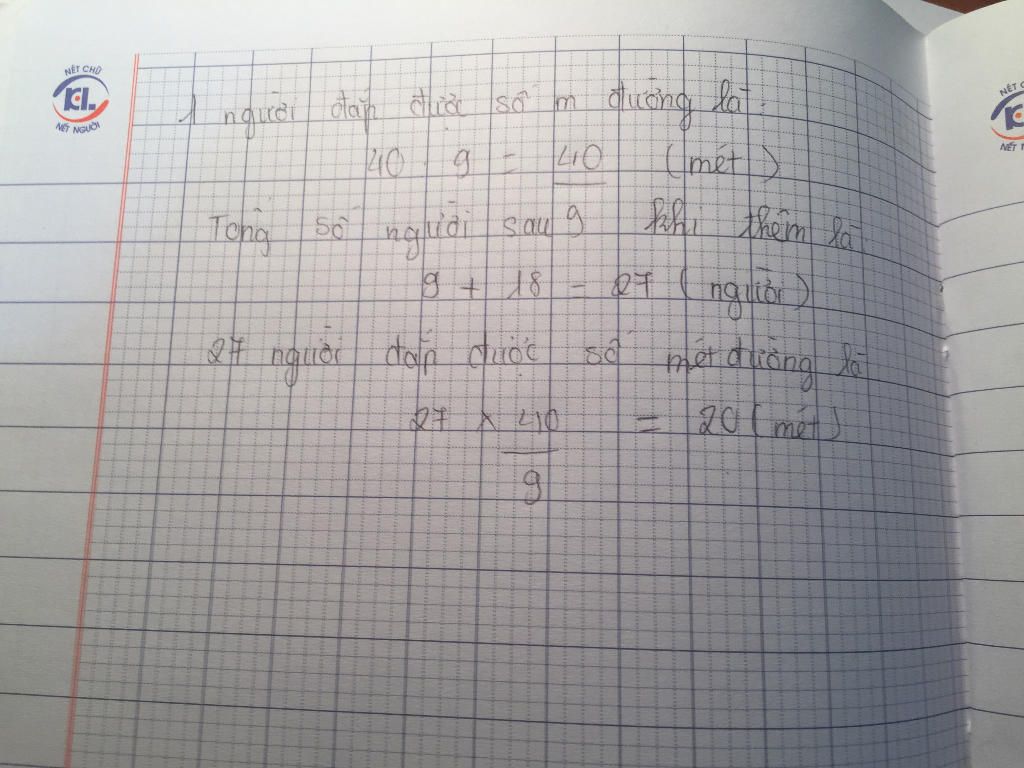 NÉT CHỮ
KL
NÉT NGƯỜI
1 người đắp được số m đường là:
40 : 9 = 40/9 (mét)
Tổng số người sau khi thêm là
9 + 18 = 27 (người)
27 người đắp được số mét đường là
27 × 40/9 = 20 (mét)
NÉT C
K
NÉT N